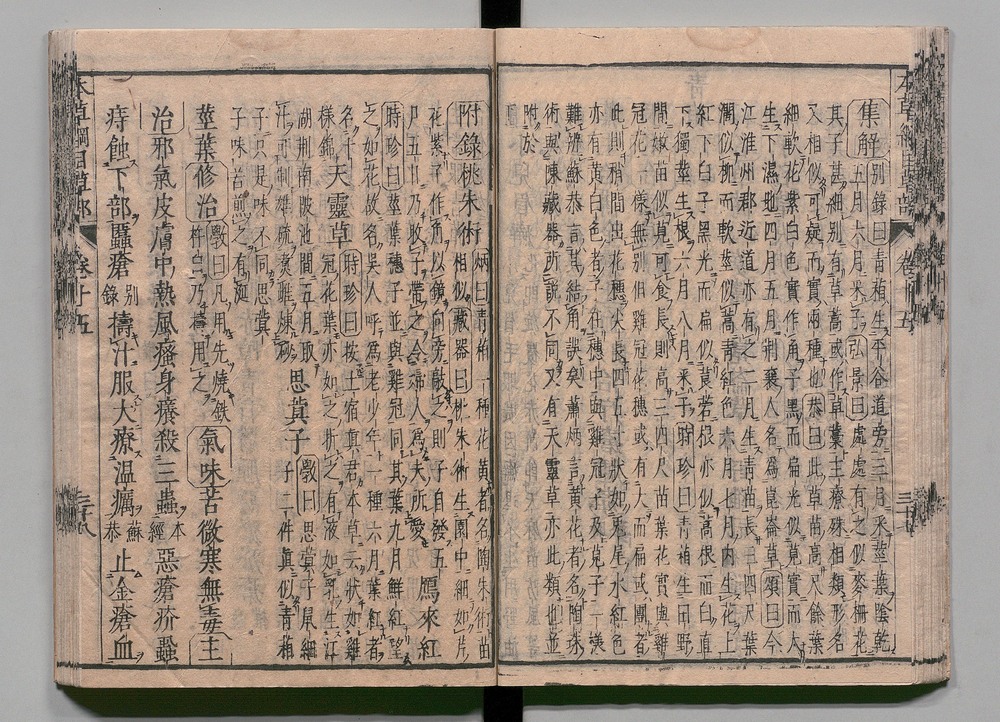 集解 別錄曰青葙生平谷道旁三月采莖葉陰乾
五月六月采子弘景曰處處有之似麥柵花
其子甚細別有草蒿或作草藁主療殊相類形名
又相似可疑而實兩種也恭曰此草苗高尺餘葉
細軟花紫白色實作角子黑而扁光似莧實而大
生下濕地四月五月荊襄人名為崑崙草頌曰今
江淮州郡近道亦有之二月生青苗長三四尺葉
濶似柳而軟莖似蒿青紅色六月七月內生花上
紅下白子黑光而扁似莨菪根亦似蒿根而白直
下獨莖生根六月八月采子時珍曰青葙生田野
間嫩苗似莧可食長則高三四尺苗葉花實與雞
冠花一樣無別但雞冠花穗或有大而扁或團者
此則稍間出花穗尖長四五寸狀如兔尾水紅色
亦有黃白色者子在穗中與雞冠子及莧子一樣
難辨蘇恭言其結角誤矣蕭炳言黃花者名陶珠
術與陳藏器所說不同又有天靈草亦此類也並
附於
附錄桃朱術 炳曰青葙一種花黃者名陶朱術苗
相似藏器曰桃朱術生園中細如芹
花紫子作角以鏡向旁敲之則子自發五
月五日乃收子帶之令婦人為夫所愛 鴈來紅
時珍曰莖葉穗子並與雞冠同其葉九月鮮紅望
之如花故名吳人呼為老少年一種六月葉紅者
名十樣錦 天靈草 時珍曰按土宿真君本草云狀如雞
冠花葉亦如之折之有液如乳生江
湖荊南陂池間五月取
汁可制雄硫煑雌煉砂 思蓂子 斆曰思蓂子鼠細
子二件真似青葙
子只是味不同思蓂
子味苦煎之有涎
莖葉修治 斆曰凡用先燒鐵
杵臼乃擣用之 氣味苦微寒無毒主
治邪氣皮膚中熱風瘙身癢殺三蟲 本
經 惡瘡疥蝨
痔蝕下部䘌瘡 別
錄 擣汁服大療温癘 蘇
恭 止金瘡血
本草綱目草部 卷十五